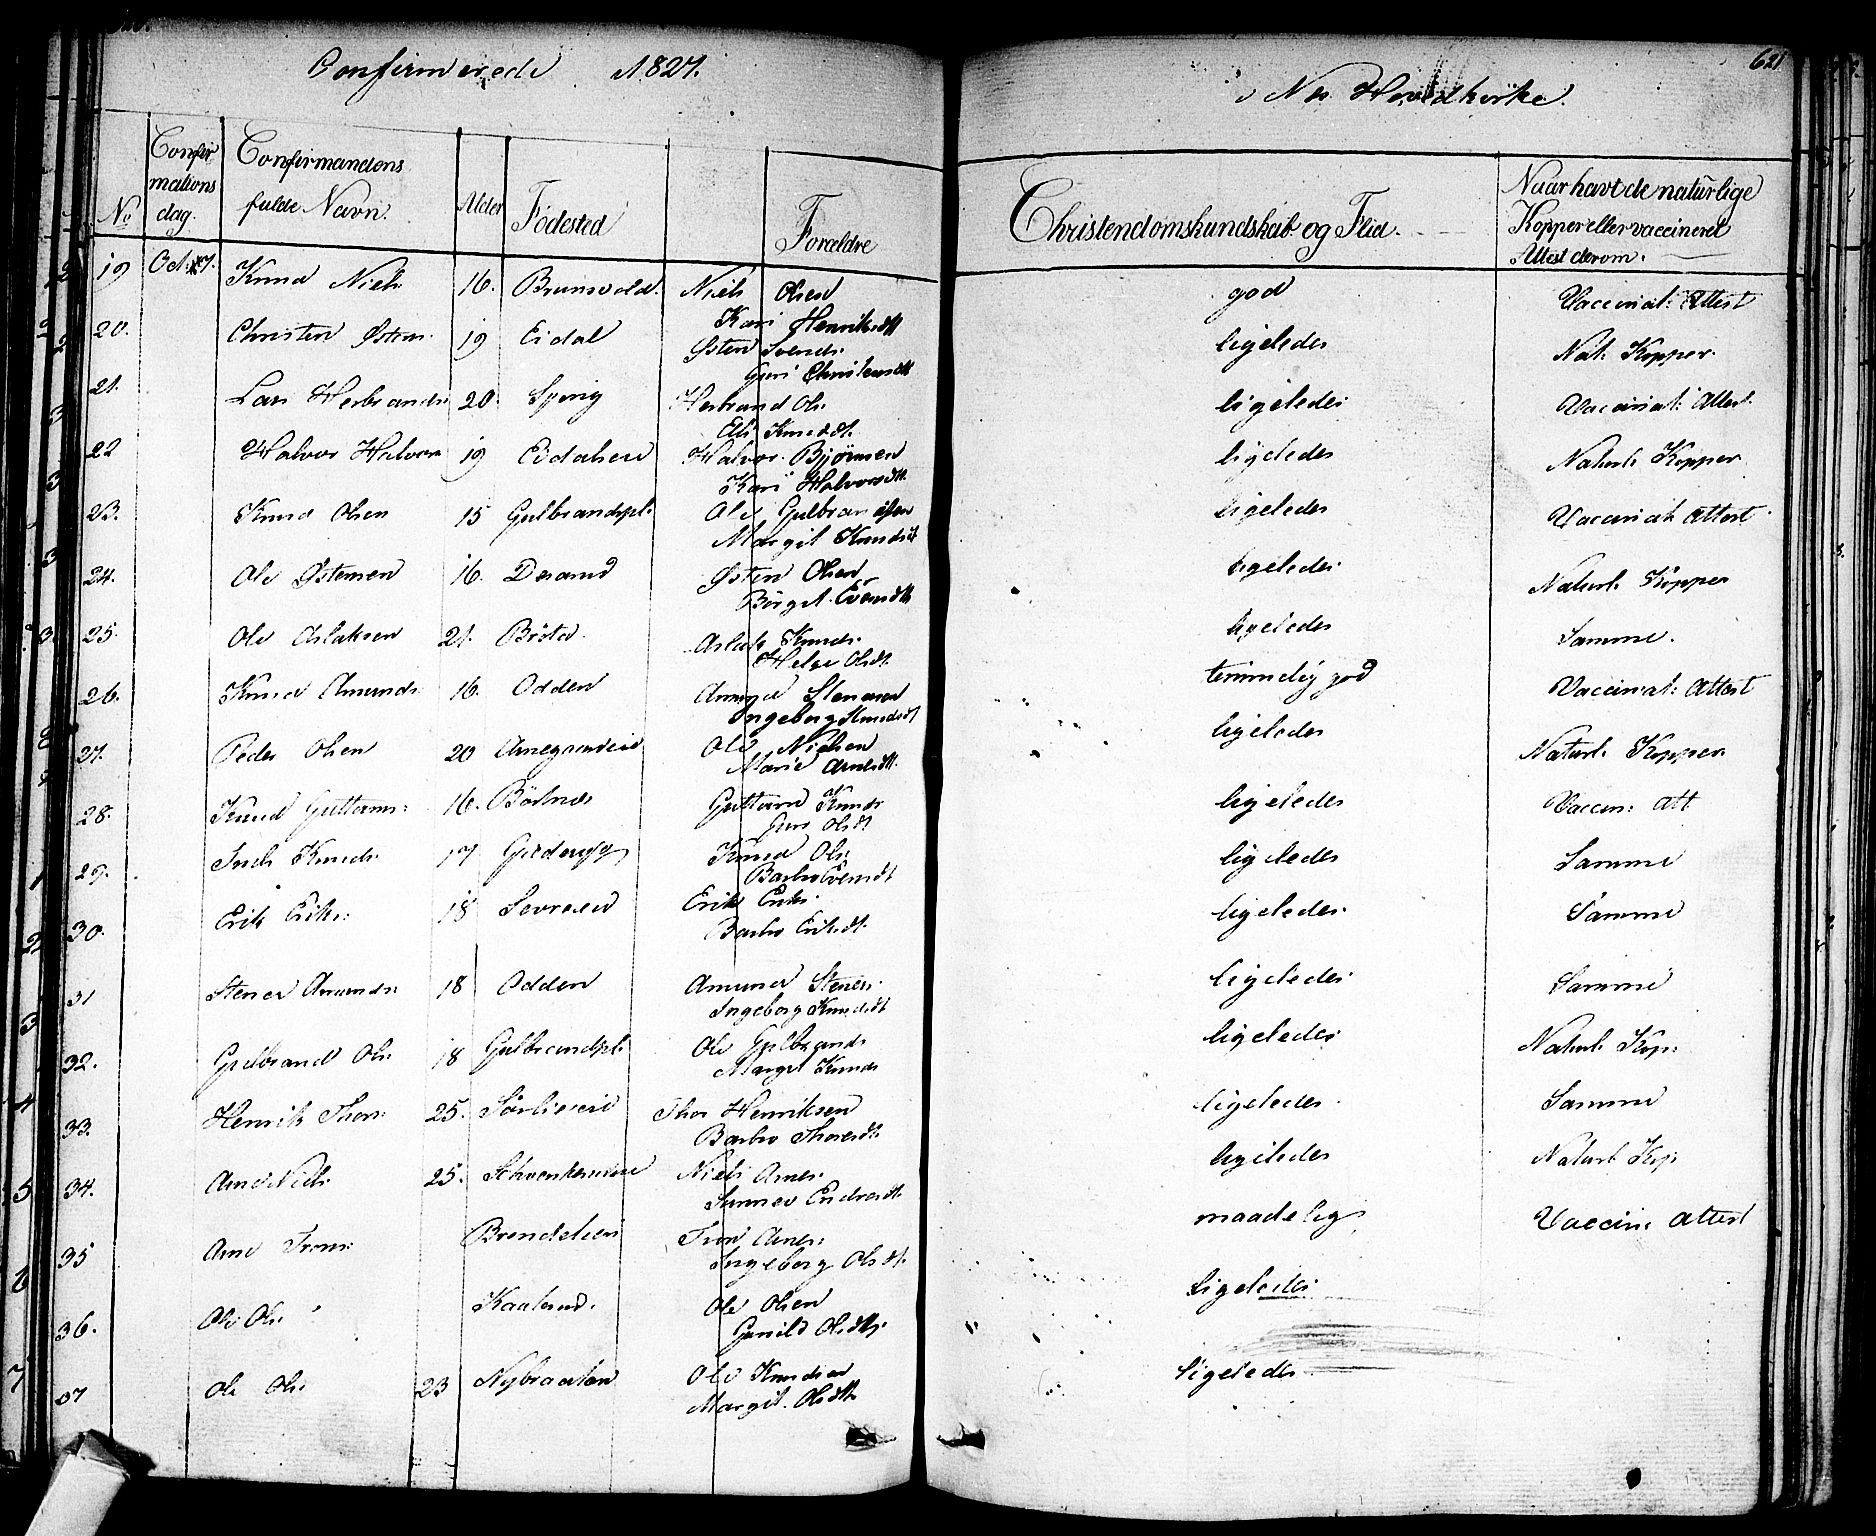 Confirmerede 1827.
i Nes Hovedkirke.
621
No
Confirmations dag.
Confirmandens fulde Navn.
Alder
Födested
Forældre
Christendomskundskab og Flid.
Naar havt de naturlige Kopper eller vaccineret Attest derom.
19 Oct. 7. Knud Niels: 16. Brunsvold. Niels Olsen god Vaccinat: Attest
Kari Henriksdtt
20. Christen Østens: 19 Eidal Østen Svends: ligeledes Nat: Kopper.
Guri Christensdtt
21. Lars Herbrands: 20 Spring Herbrand Ols: ligeledes Vaccinat: Attest.
Eli Knudsdt.
22 Halvor Halvors 19 Eidalseie Halvor Bjørnsen ligeledes Naturl: Kopper
Kari Halvorsdtt.
23. Knud Olsen 15 Gulbrandspl: Ole Gulbransen ligeledes Vaccinat: Attest
Margit Knudsdt
24. Ole Østensen 16. Desand Østen Olsen ligeledes Naturl: Kopper
Börget Evensdtt
25. Ole Aslaksen 21. Aslak Knuds: ligeledes Samme.
Helge Olsdt.
26. Knud Amunds: 16. Odden Amund Stenersen temmelig god Vaccinat: Attest
Ingeborg Knudsdt
27. Peder Olsen 20 Ole Nielsen ligeledes Naturl: Kopper
Marie Arnesdtt.
28. Knud Guttorms: 16. Börtnes Guttorm Knuds ligeledes Vaccin: Att
Guri Olsdt
29. Knuds: 17 Knud Ols: ligeledes Samme
Barbro Evensdt
30. Erik Eriks: 18 Sevreeie Erik Eriks: ligeledes Samme
Barbro Eriksdt.
31 Stener Amunds: 18 Odden Amund Steners: ligeledes Samme
Ingeborg Knudsdt
32. Gulbrand Ols: 18 Gulbrandspl: Ole Gulbrands: ligeledes Naturl: Kop:
Margit Knuds
33. Henrik Thors: 25. Sørlieeie Thor Henriksen ligeledes Samme
Barbro Thoresdt.
34. Arne Niels: 25. Niels Arnes: ligeledes Naturl: Kop:
Endresdt.
35 Arne Trons: Tron Arnes: maadelig Vaccin: Attest
Ingeborg Olsdt.
36. Ole Ols: Kaalrud. Ole Olsen ligeledes
Gunild Olsdtt.
37 Ole Ols: 23 Nybraaten Ole Knudsen ligeledes
Margit. Olsdtt.